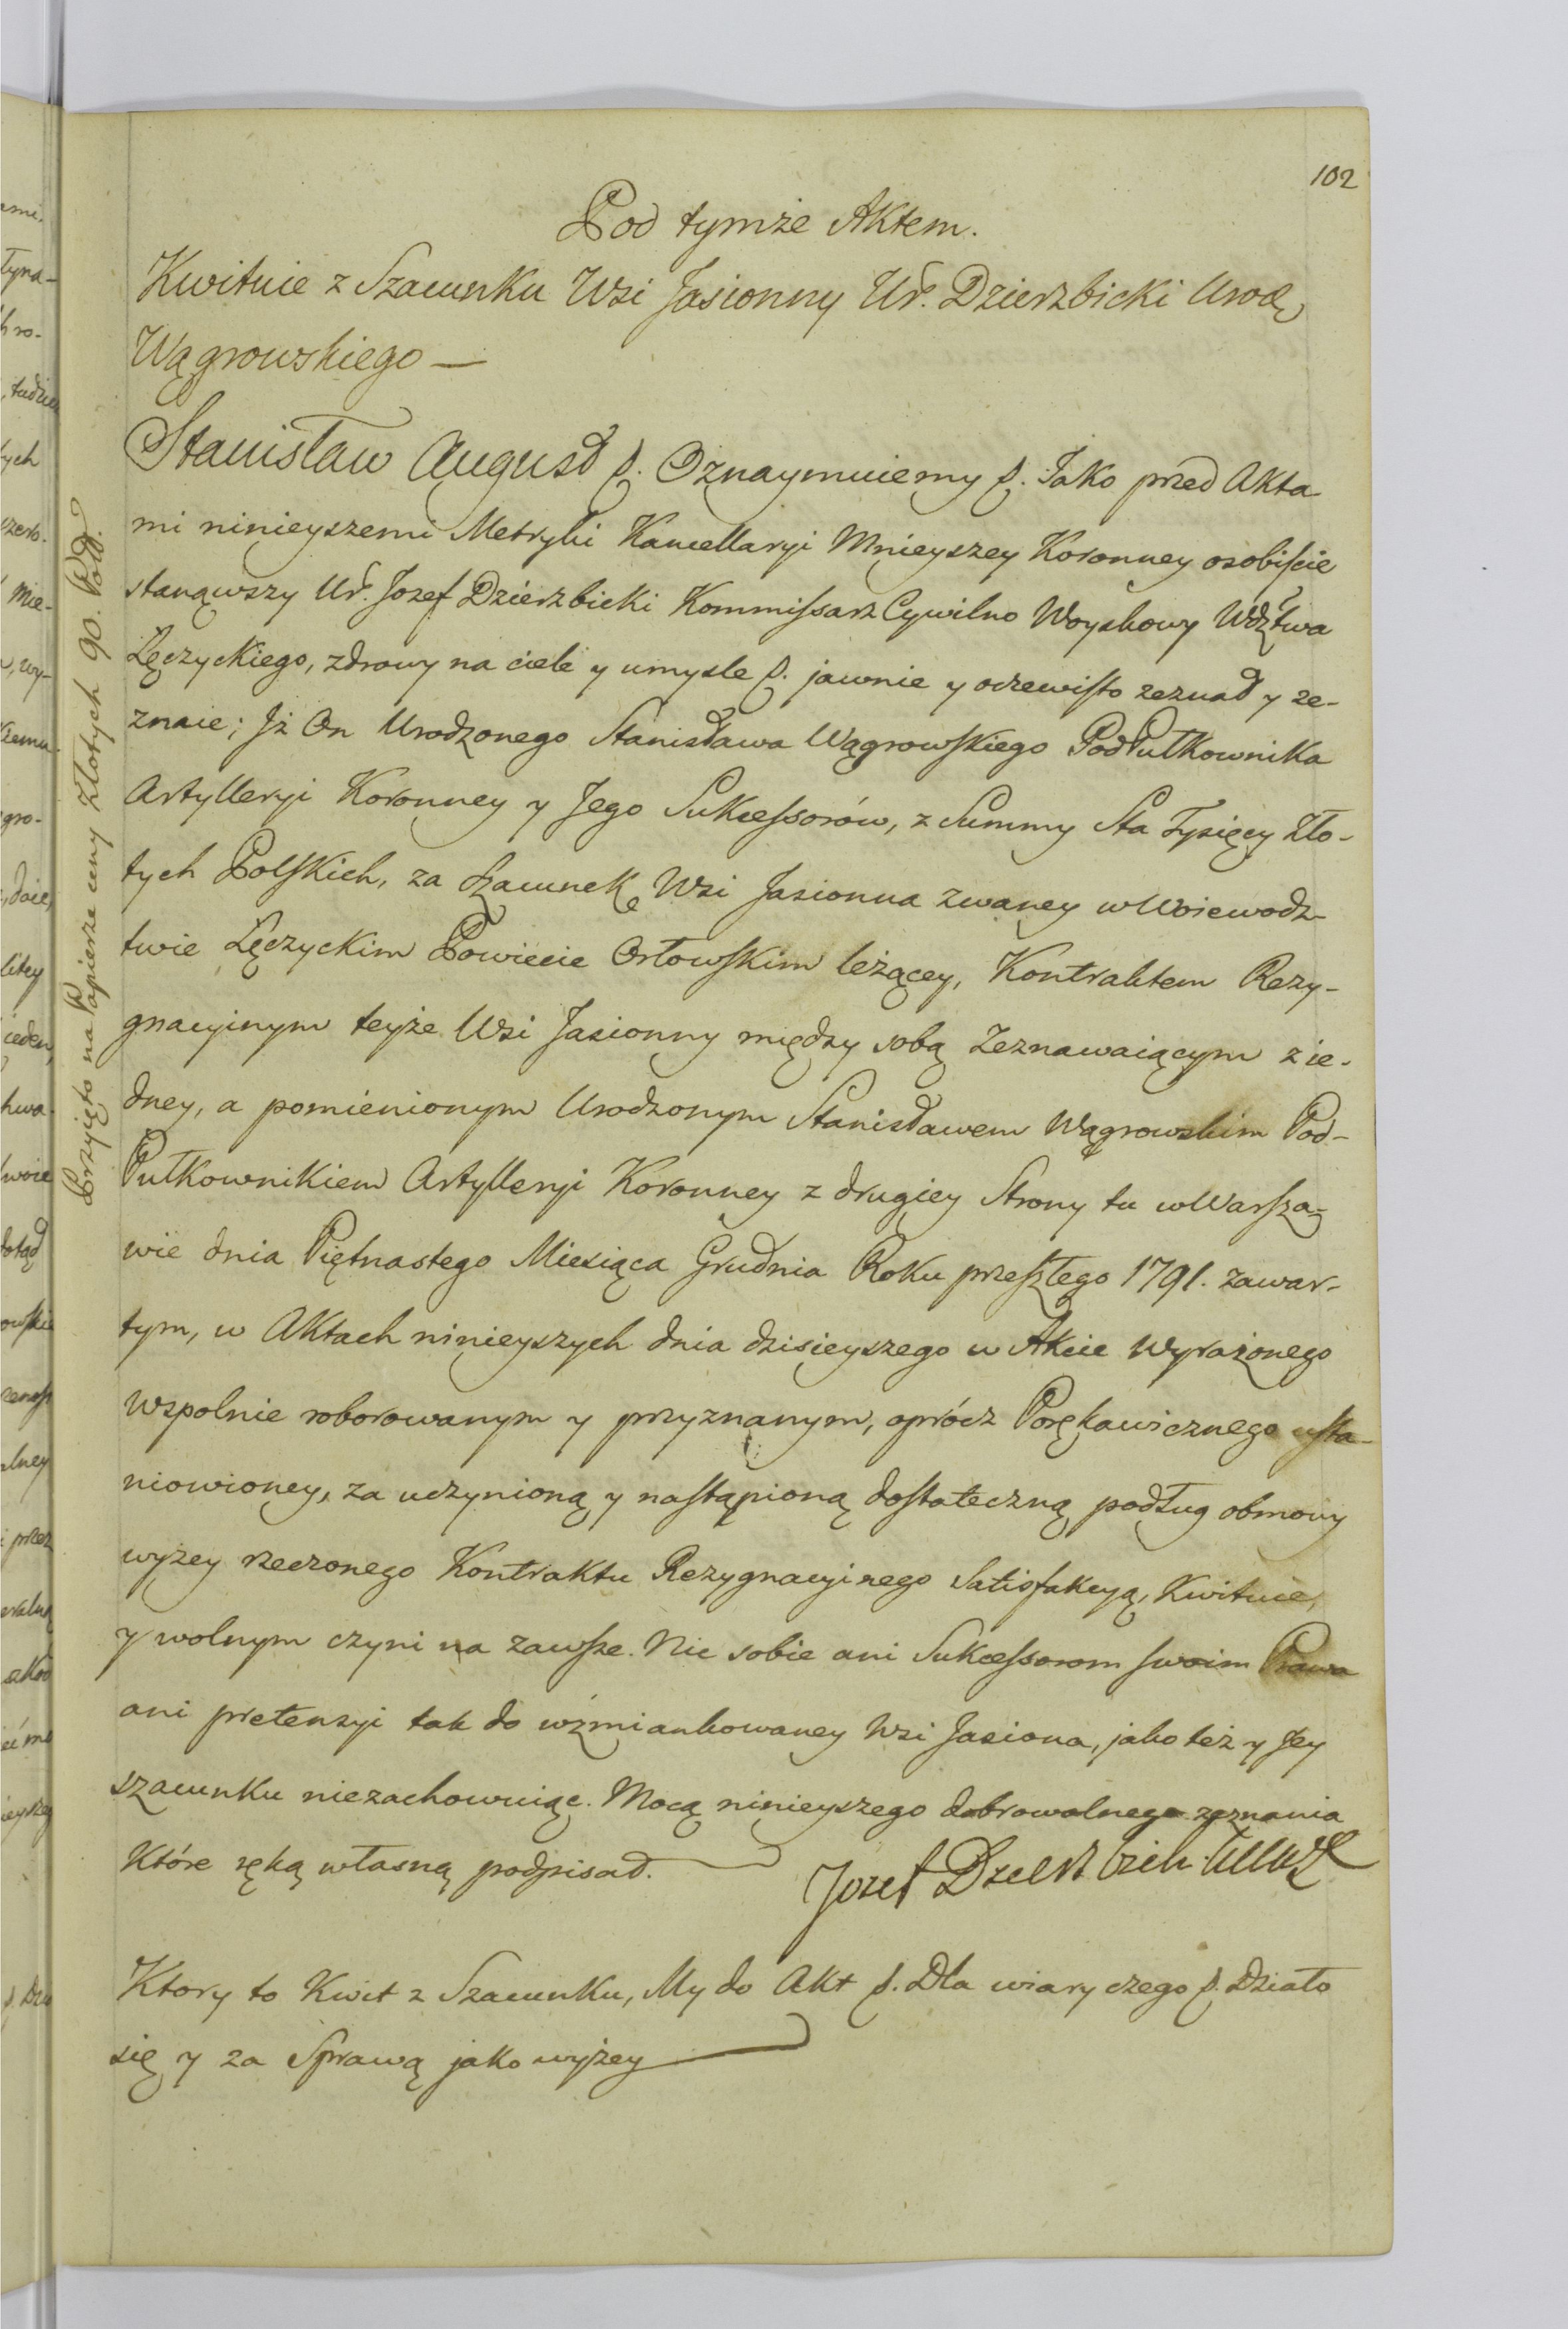 102
Pod tymże Aktem.
Kwituie z Szacunku Wsi Jasionny Ur. Dzierzbicki Urodz.
Wągrowskiego —
Stanisław August p. Oznaymuiemy p. Jako przed Akta-
mi ninieyszemi Metryki Kancellaryi Mnieyszey Koronney osobiście
stanąwszy Ur. Jozef Dzierzbicki Kommissarz Cywilno Woyskowy Wdztwa
Łęczyckiego, zdrowy na ciele y umysle p. jawnie y oczewisto zeznał y ze-
znaie; Jż On Urodzonego Stanisława Wągrowskiego PodPułkownika
Artylleryi Koronney y Jego Sukcessorów, z Summy Sta Tysięcy Zło-
tych Polskich, za Szacunek Wsi Jasionna zwaney w Woiewodz-
twie Łęczyckim Powiecie Orłowskim leżącey, Kontraktem Rezy-
gnacyinym teyże Wsi Jasionny między sobą Zeznawaiącym z ie-
dney, a pomienionym Urodzonym Stanisławem Wągrowskim Pod-
Pułkownikiem Artylleryi Koronney z drugiey Strony tu w Warsza-
wie dnia Piętnastego Miesiąca Grudnia Roku przeszłego 1791. zawar-
tym, w Aktach ninieyszych dnia dzisieyszego w Akcie Wyrażonego
wspolnie roborowanym y przyznanym, oprócz Porękawicznego usta-
niowioney, za uczynioną y nastąpioną dostateczną podług obmowy
wyżey rzeczonego Kontraktu Rezygnacyinego Satisfakcyą, Kwituie,
y wolnym czyni na zawsze. Nic sobie ani Sukcessorom swoim Prawa
ani pretensyi tak do wźmiankowaney Wsi Jasiona, jako też y Jey
szacunku niezachowuiąc. Mocą ninieyszego dobrowolnego zeznania
Które ręką własną podpisał.
Jozef Dzierzbicki
Ktory to Kwit z Szacunku, My do Akt p. Dla wiary czego p. Działo
się y za Sprawą jako wyżey
Przyięto na Papierze ceny Złotych 90. Pol.